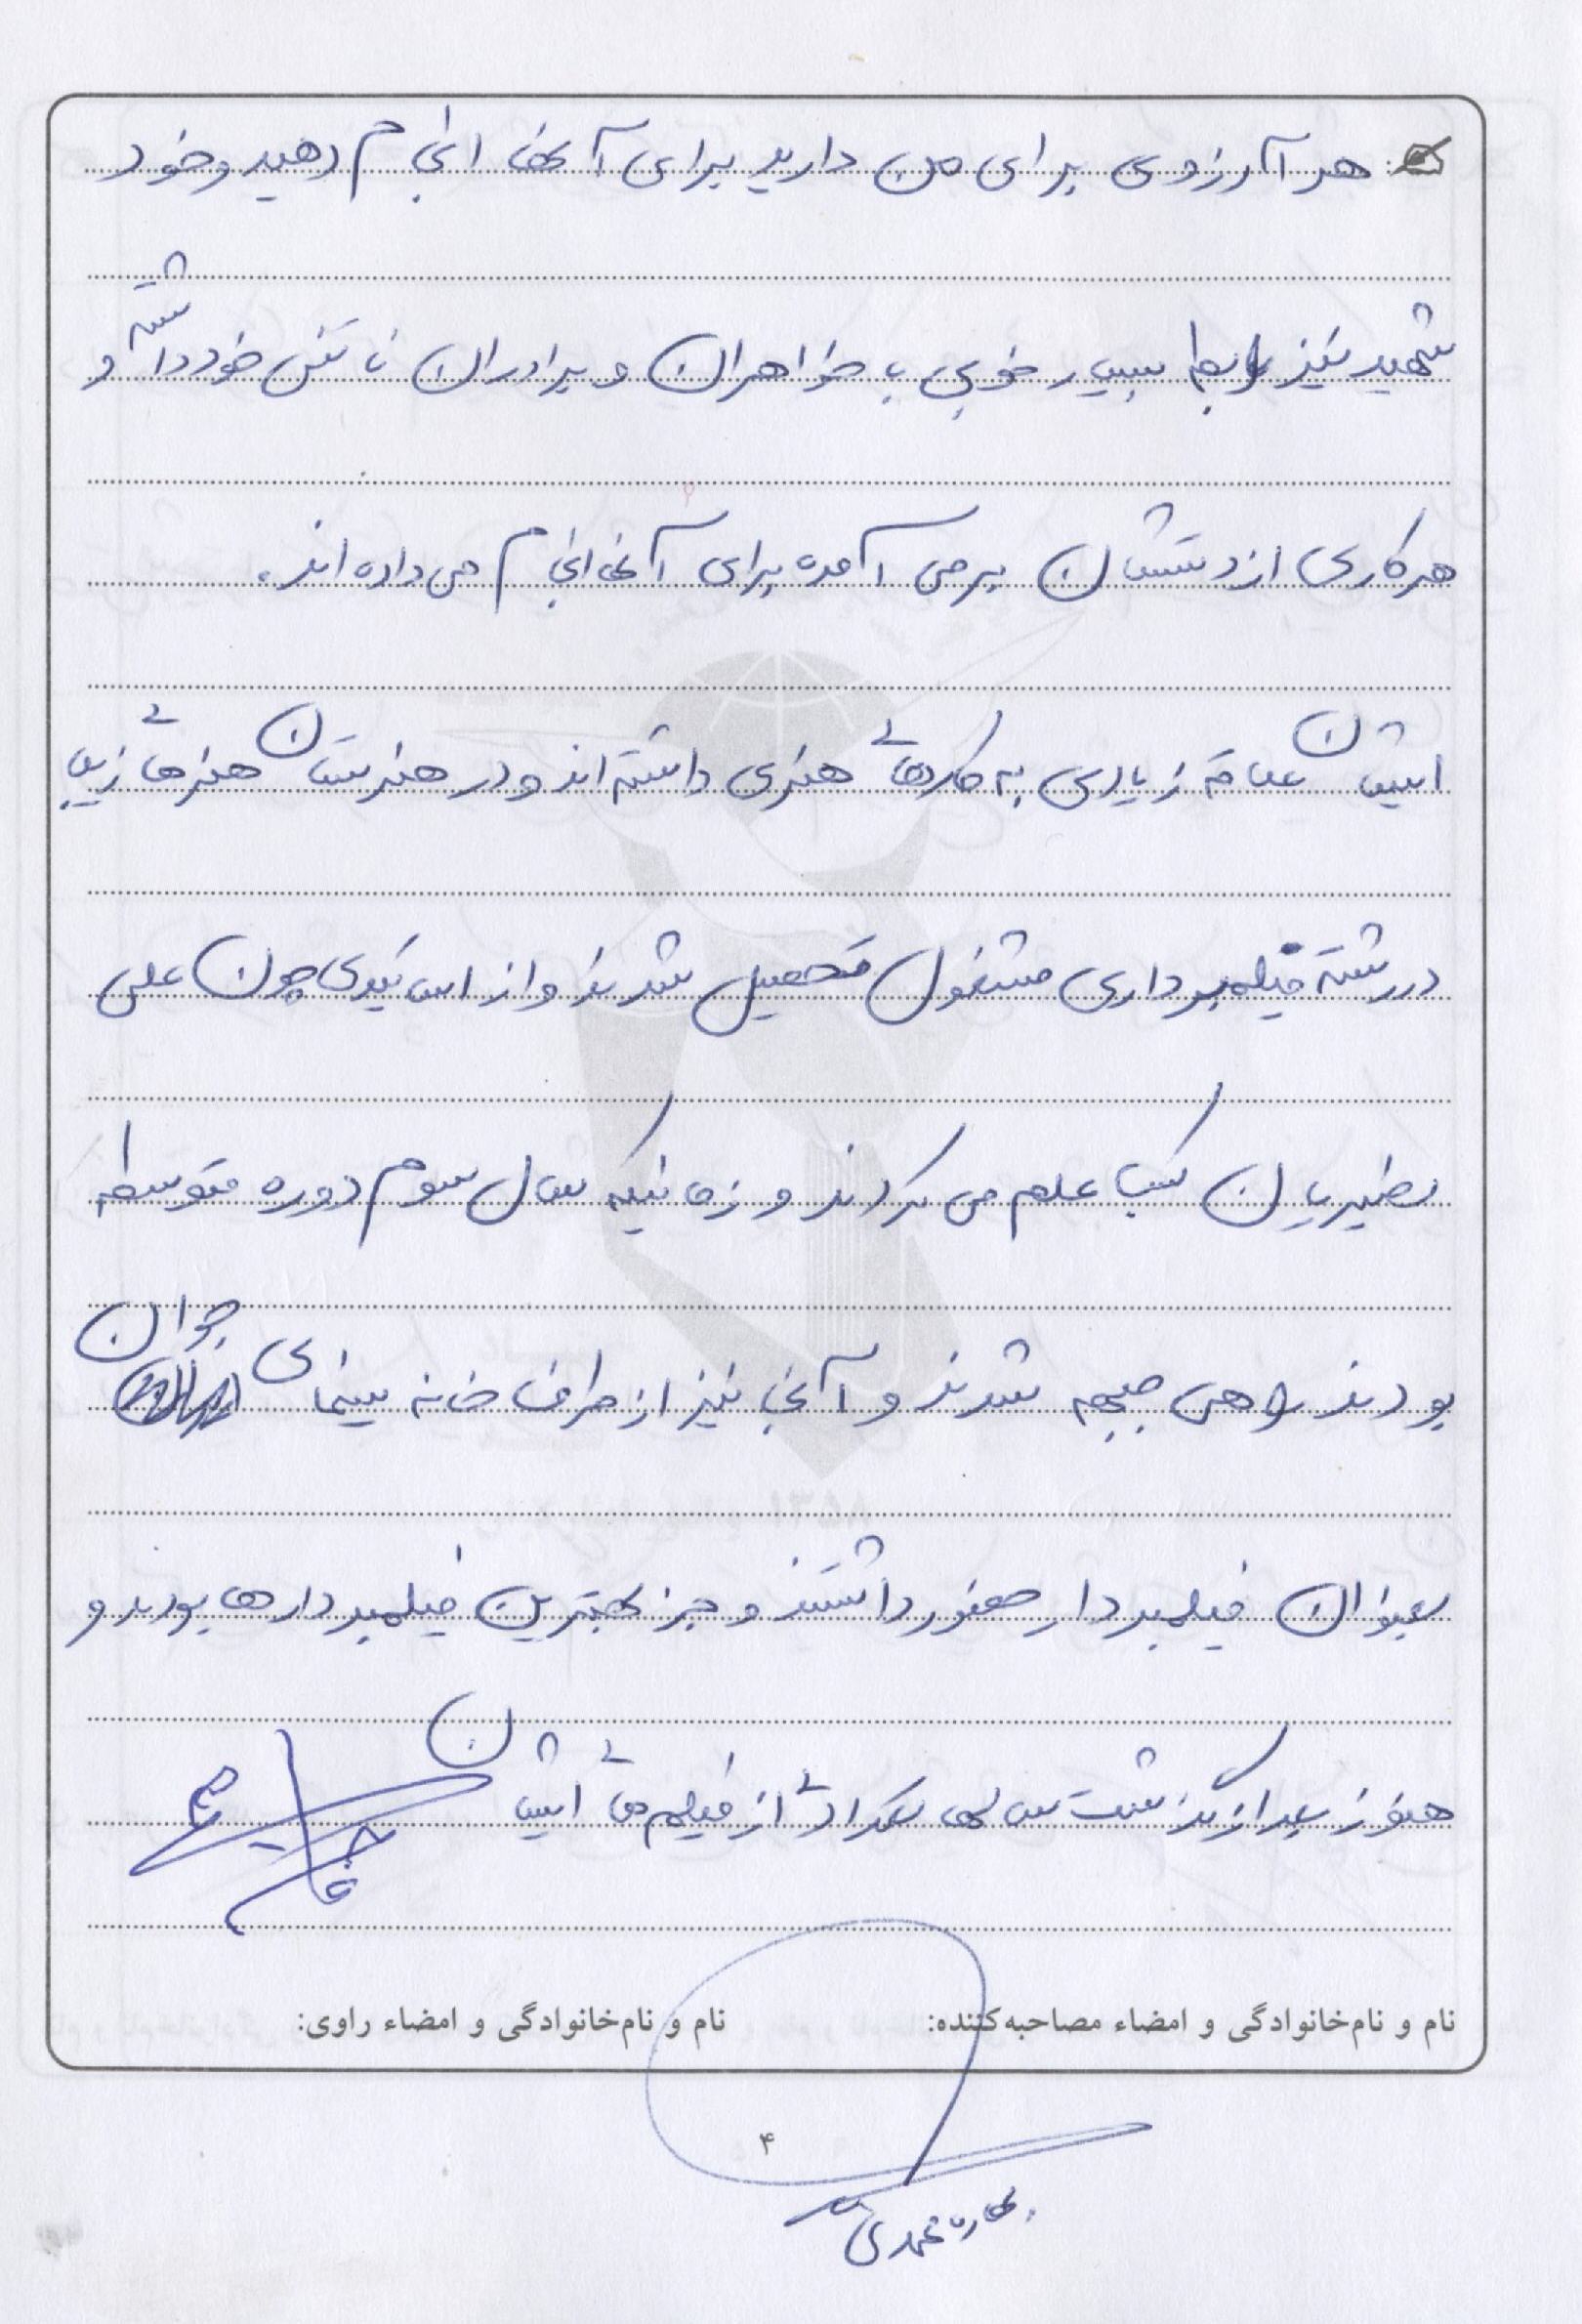 هر آرزوی برای من دارید برای آنها انجام دهید و خود
شهید نیز رابطه بسیار خوبی با خواهران و برادران ناتنی خود داشته و
هر کاری از دستشان برمی آمده برای آنها انجام می داده اند.
ایشان علاقه زیادی به کارهای هنری داشته اند و در هنرستان هنرهای زیبا
در رشته فیلمبرداری مشغول تحصیل شدند و از اساتیدی چون علی
نصیریان کسب علم می کردند و زمانیکه سال سوم دوره متوسطه
بودند راهی جبهه شدند و آنجا نیز از طرف خانه سینمای جوان
بعنوان فیلمبردار حضور داشتند و جز بهترین فیلمبردارها بودند و
هنوز بعد از گذشت سالها تعدادی از فیلم های ایشان
نام و نام‌خانوادگی و امضاء مصاحبه‌کننده:
نام و نام‌خانوادگی و امضاء راوی:
۴
بهاره محمدی